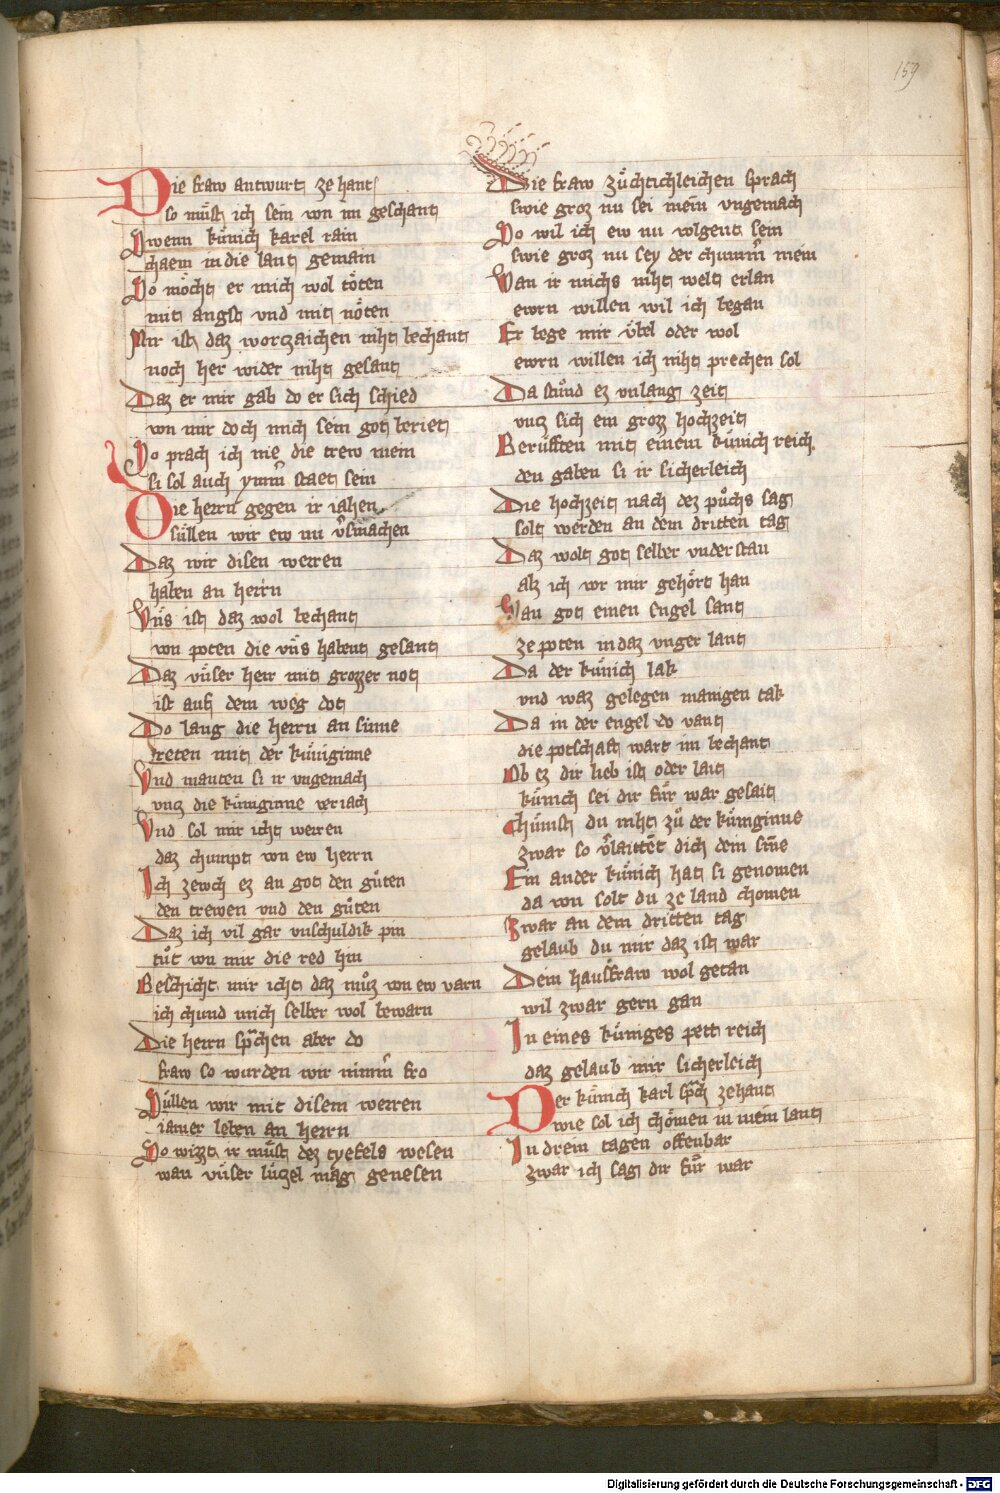 159
Die fraw antwurt ze hant
so muͤst ich sein von im geschant
Swenn kuͤnich karel rain
chaem in die lant gemain
So moͤcht er mich wol toͤten
mit angst vnd mit noͤten
Mir ist daz wortzaichen niht bechant
noch her wider niht gesant
Daz er mir gab do er sich schied
von mir doch mich sein got beriet
So prach ich nie die trew mein
si sol auch ymm̄ staet sein
Die herrn gegen ir iahen
suͤllen wir ew nu v̄smachen
Daz wir disen werren
haben an herrn
Vns ist daz wol bechant
von poten die vns habent gesant
Daz vnser herr mit grozzer not
ist auf dem weg dot
Do lang die herrn an sinne
treten mit der kuͤniginne
Vnd manten si ir vngemach
vntz die kuͤniginne veriach
Vnd sol mir icht werren
daz chumpt von ew herrn
Ich zewch ez an got den guͤten
den trewen vnd den guͤten
Daz ich vil gar vnschuldik pin
tuͤt von mir die red hin
Beschicht mir icht daz muͤz von ew varn
ich chund mich selber wol bewarn
Die herrn sp̄chen aber do
fraw so wurden wir nimm̄ fro
Suͤllen wir mit disem werren
iamer leben an herrn
So wizzt ir muͤst dez tyefels wesen
wan vnser luͤtzel mag genesen
Die fraw zuͤchtichleichen sprach
swie groz nu sei mein vngemach
So wil ich ew nu volgent sein
swie groz nu sey der chumm̄ mein
Wan ir michs niht welt erlan
ewrn willen wil ich began
Er bege mir vbel oder wol
ewrn willen ich niht prechen sol
Da stuͤnd ez vnlang zeit
vntz sich ein grozz hochzeit
Beruͤfften mit einem kuͤnich reich
den gaben si ir sicherleich
Die hochzeit nach dez puͤchs sag
solt werden an dem dritten tag
Daz wolt got selber vnderstan
alz ich vor mir gehoͤrt han
Wan got einen Engel sant
ze poten in daz vnger lant
Da der kuͤnich lak
vnd waz gelegen manigen tak
Da in der engel do vant
die potschaft wart im bechant
Ob ez dir lieb ist oder lait
kuͤnich sei dir fuͤr war gesait
Chuͤmst du niht zuͤ der kuͤniginne
zwar so v̄laittēt dich dein sīne
Ein ander kuͤnich hat si genomen
da von solt du ze land chomen
Zwar an dem dritten tag
gelaub du mir daz ist war
Dein hausfraw wol getan
wil zwar gern gan
In eines kuͤniges pett reich
daz gelaub mir sicherleich
Der kuͤnich karl sp̄ch zehant
wie sol ich choͤmen in mein lant
In drein tagen offenbar
zwar ich sag dir fuͤr war
Digitalisierung gefördert durch die Deutsche Forschungsgemeinschaft - DFG